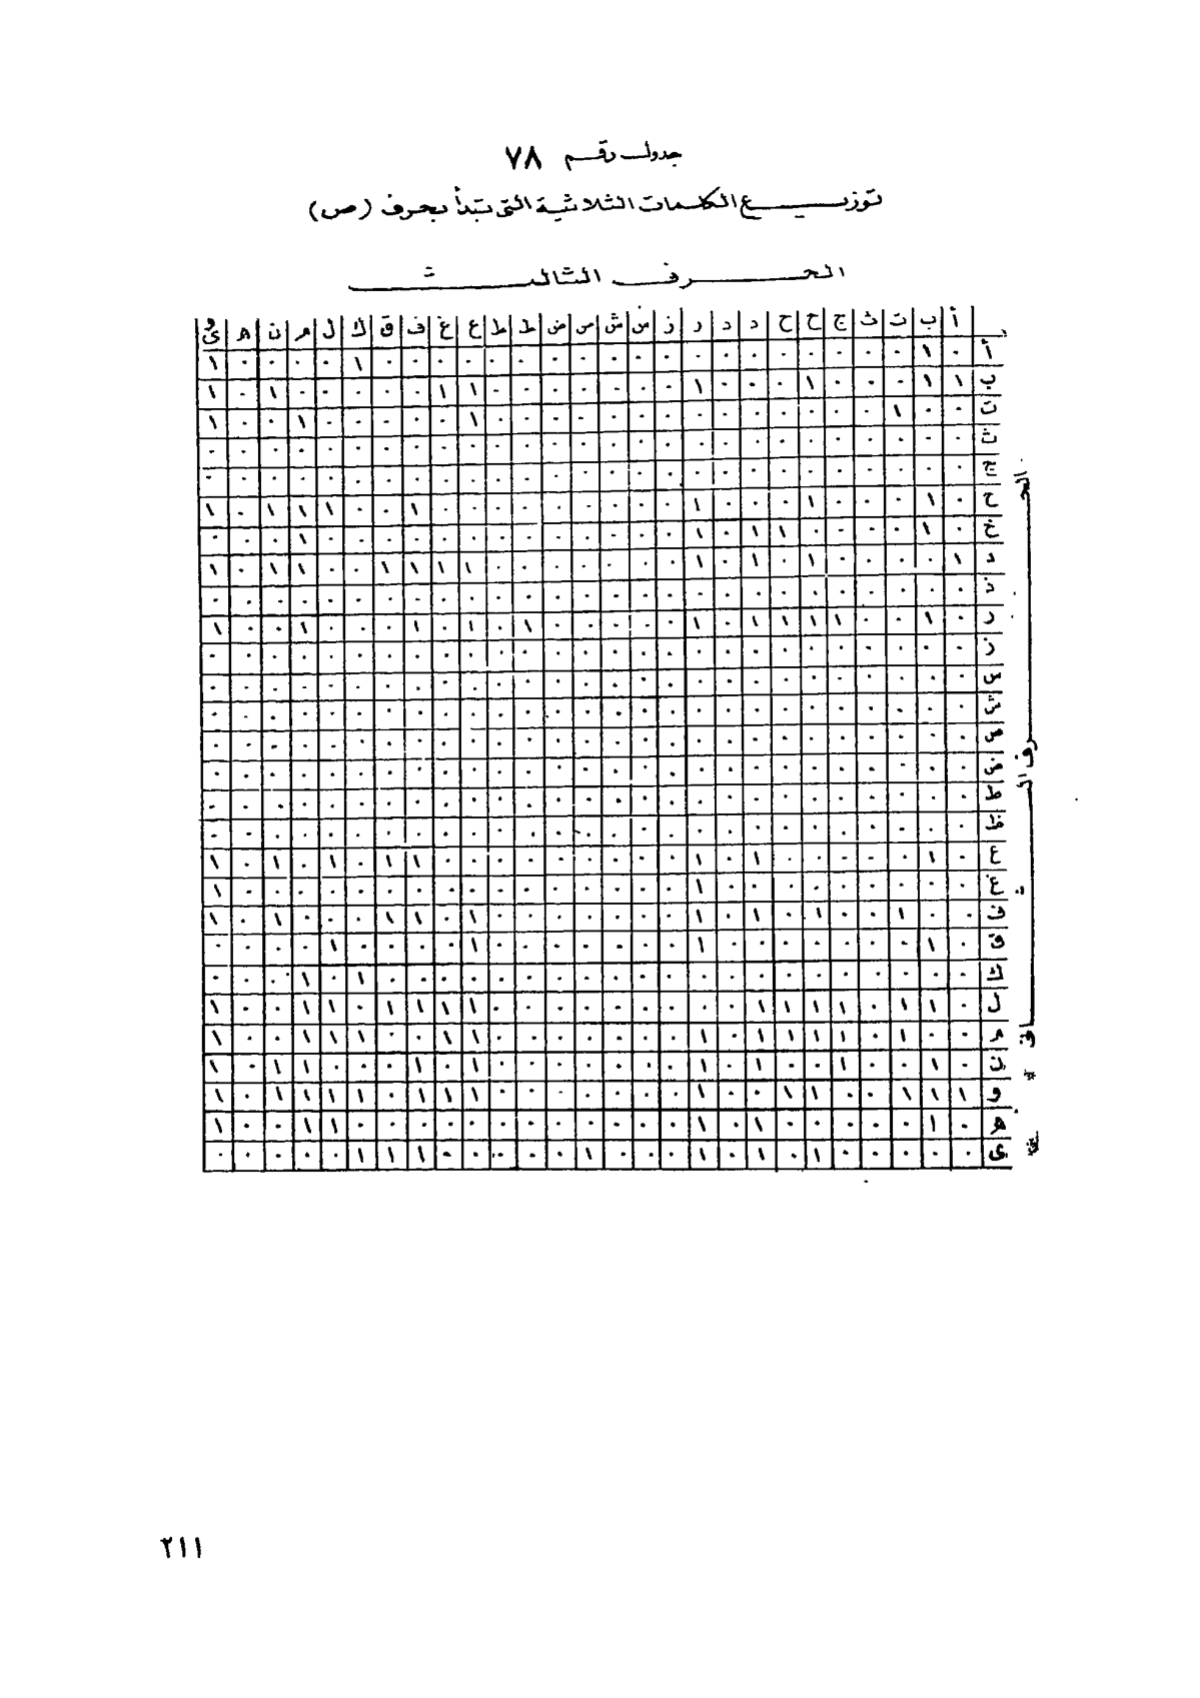 جدول رقم ٧٨
توزيع الكلمات الثلاثية التى تبدأ بحرف (ص)
الحرف الثالث
أ ب ت ث ج ح ح د د ر ز س ش ص ض ط ط ع غ ف ق ك ل م ن ه و ى
الحرف الثانى
أ ٠ ١ ٠ ٠ ٠ ٠ ٠ ٠ ٠ ٠ ٠ ٠ ٠ ٠ ٠ ٠ ٠ ٠ ٠ ٠ ٠ ١ ٠ ٠ ٠ ٠ ١
ب ١ ١ ٠ ٠ ٠ ١ ٠ ٠ ٠ ١ ٠ ٠ ٠ ٠ ٠ ٠ ٠ ١ ١ ٠ ٠ ٠ ٠ ٠ ١ ٠ ١
ت ٠ ٠ ١ ٠ ٠ ٠ ٠ ٠ ٠ ٠ ٠ ٠ ٠ ٠ ٠ ٠ ٠ ١ ٠ ٠ ٠ ٠ ٠ ١ ٠ ٠ ١
ث ٠ ٠ ٠ ٠ ٠ ٠ ٠ ٠ ٠ ٠ ٠ ٠ ٠ ٠ ٠ ٠ ٠ ٠ ٠ ٠ ٠ ٠ ٠ ٠ ٠ ٠ ٠
ج ٠ ٠ ٠ ٠ ٠ ٠ ٠ ٠ ٠ ٠ ٠ ٠ ٠ ٠ ٠ ٠ ٠ ٠ ٠ ٠ ٠ ٠ ٠ ٠ ٠ ٠ ٠
ح ٠ ١ ٠ ٠ ٠ ١ ٠ ٠ ٠ ١ ٠ ٠ ٠ ٠ ٠ ٠ ٠ ٠ ٠ ١ ٠ ٠ ١ ١ ١ ٠ ١
خ ٠ ١ ٠ ٠ ٠ ٠ ١ ١ ٠ ١ ٠ ٠ ٠ ٠ ٠ ٠ ٠ ٠ ٠ ٠ ٠ ٠ ٠ ١ ٠ ٠ ٠
د ١ ٠ ٠ ٠ ٠ ١ ٠ ١ ٠ ١ ٠ ٠ ٠ ٠ ٠ ٠ ٠ ١ ١ ١ ١ ٠ ٠ ١ ١ ٠ ١
ذ ٠ ٠ ٠ ٠ ٠ ٠ ٠ ٠ ٠ ٠ ٠ ٠ ٠ ٠ ٠ ٠ ٠ ٠ ٠ ٠ ٠ ٠ ٠ ٠ ٠ ٠ ٠
ر ٠ ١ ٠ ٠ ١ ١ ١ ١ ٠ ١ ٠ ٠ ٠ ٠ ٠ ١ ٠ ١ ٠ ١ ٠ ٠ ٠ ١ ٠ ٠ ١
ز ٠ ٠ ٠ ٠ ٠ ٠ ٠ ٠ ٠ ٠ ٠ ٠ ٠ ٠ ٠ ٠ ٠ ٠ ٠ ٠ ٠ ٠ ٠ ٠ ٠ ٠ ٠
س ٠ ٠ ٠ ٠ ٠ ٠ ٠ ٠ ٠ ٠ ٠ ٠ ٠ ٠ ٠ ٠ ٠ ٠ ٠ ٠ ٠ ٠ ٠ ٠ ٠ ٠ ٠
ش ٠ ٠ ٠ ٠ ٠ ٠ ٠ ٠ ٠ ٠ ٠ ٠ ٠ ٠ ٠ ٠ ٠ ٠ ٠ ٠ ٠ ٠ ٠ ٠ ٠ ٠ ٠
ص ٠ ٠ ٠ ٠ ٠ ٠ ٠ ٠ ٠ ٠ ٠ ٠ ٠ ٠ ٠ ٠ ٠ ٠ ٠ ٠ ٠ ٠ ٠ ٠ ٠ ٠ ٠
ض ٠ ٠ ٠ ٠ ٠ ٠ ٠ ٠ ٠ ٠ ٠ ٠ ٠ ٠ ٠ ٠ ٠ ٠ ٠ ٠ ٠ ٠ ٠ ٠ ٠ ٠ ٠
ط ٠ ٠ ٠ ٠ ٠ ٠ ٠ ٠ ٠ ٠ ٠ ٠ ٠ ٠ ٠ ٠ ٠ ٠ ٠ ٠ ٠ ٠ ٠ ٠ ٠ ٠ ٠
ظ ٠ ٠ ٠ ٠ ٠ ٠ ٠ ٠ ٠ ٠ ٠ ٠ ٠ ٠ ٠ ٠ ٠ ٠ ٠ ٠ ٠ ٠ ٠ ٠ ٠ ٠ ٠
ع ٠ ١ ٠ ٠ ٠ ٠ ٠ ١ ٠ ١ ٠ ٠ ٠ ٠ ٠ ٠ ٠ ٠ ٠ ١ ١ ٠ ١ ٠ ١ ٠ ١
غ ٠ ٠ ٠ ٠ ٠ ٠ ٠ ٠ ٠ ١ ٠ ٠ ٠ ٠ ٠ ٠ ٠ ٠ ٠ ٠ ٠ ٠ ٠ ٠ ٠ ٠ ١
ف ٠ ٠ ١ ٠ ٠ ١ ٠ ١ ٠ ١ ٠ ٠ ٠ ٠ ٠ ٠ ٠ ١ ٠ ١ ١ ٠ ٠ ٠ ١ ٠ ١
ق ٠ ١ ٠ ٠ ٠ ٠ ٠ ٠ ٠ ١ ٠ ٠ ٠ ٠ ٠ ٠ ٠ ١ ٠ ٠ ٠ ٠ ١ ٠ ٠ ٠ ٠
ك ٠ ٠ ٠ ٠ ٠ ٠ ٠ ٠ ٠ ٠ ٠ ٠ ٠ ٠ ٠ ٠ ٠ ٠ ٠ ٠ ٠ ١ ٠ ١ ٠ ٠ ٠
ل ٠ ١ ١ ٠ ١ ١ ١ ١ ٠ ٠ ٠ ٠ ٠ ٠ ٠ ٠ ٠ ١ ١ ١ ١ ٠ ١ ١ ٠ ٠ ١
م ٠ ٠ ١ ٠ ١ ١ ١ ١ ٠ ١ ٠ ٠ ٠ ٠ ٠ ٠ ٠ ١ ١ ٠ ٠ ١ ١ ١ ٠ ٠ ١
ن ٠ ١ ٠ ٠ ١ ٠ ٠ ١ ٠ ١ ٠ ٠ ٠ ٠ ٠ ٠ ٠ ١ ٠ ١ ٠ ٠ ٠ ١ ١ ٠ ١
و ١ ١ ١ ٠ ٠ ١ ١ ٠ ٠ ١ ٠ ٠ ٠ ٠ ٠ ٠ ٠ ١ ١ ١ ٠ ١ ١ ١ ١ ٠ ١
ه ٠ ١ ٠ ٠ ٠ ٠ ٠ ١ ٠ ١ ٠ ٠ ٠ ٠ ٠ ٠ ٠ ٠ ٠ ٠ ٠ ٠ ١ ١ ٠ ٠ ١
ي ٠ ٠ ٠ ٠ ٠ ١ ٠ ١ ٠ ١ ٠ ٠ ٠ ١ ٠ ٠ ٠ ٠ ٠ ١ ١ ١ ٠ ٠ ٠ ٠ ٠
٢١١